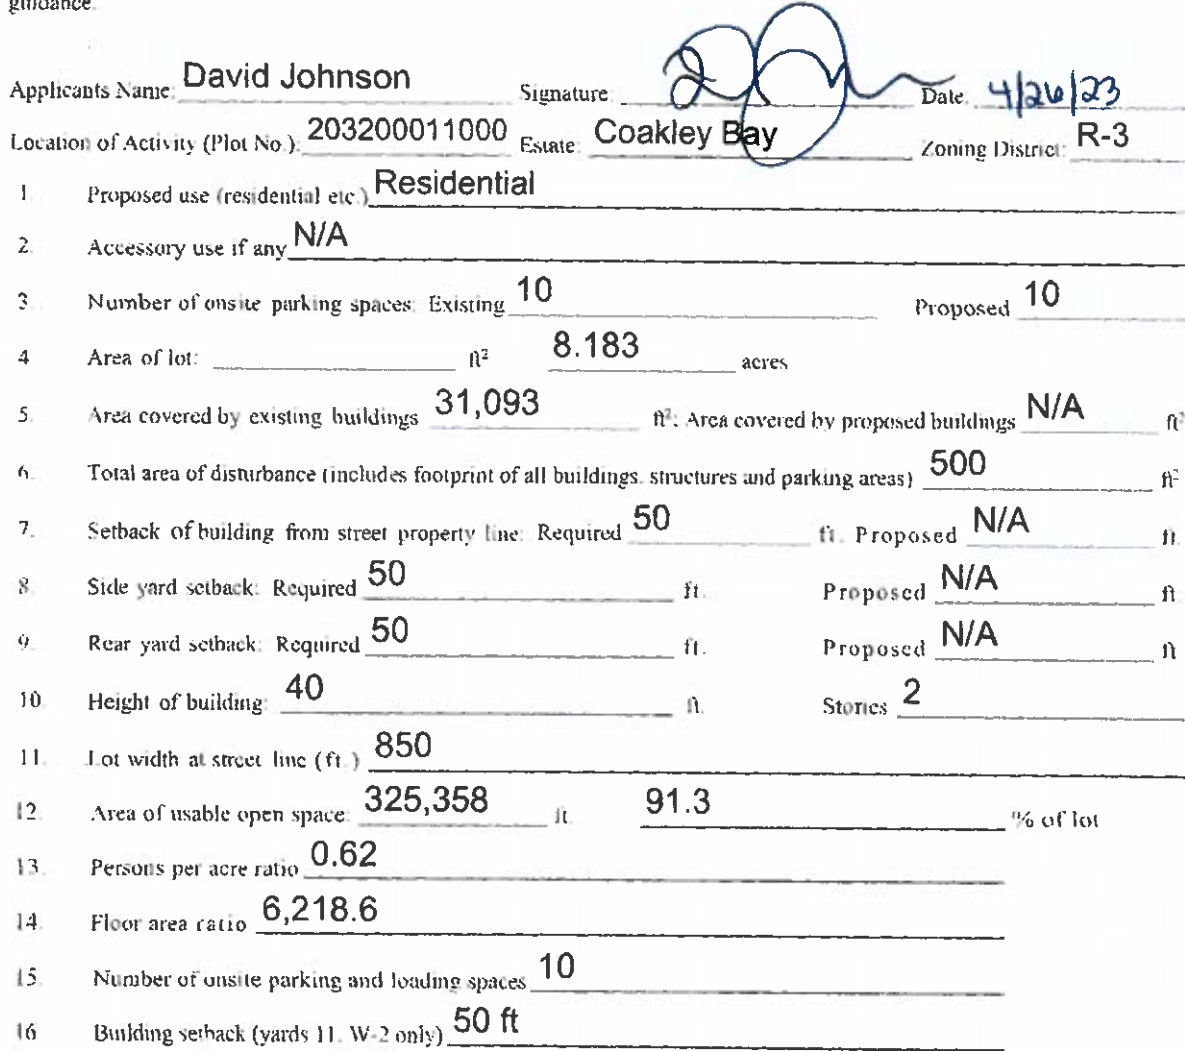 guidance.
Applicants Name: David Johnson Signature Date: 4/26/23
Location of Activity (Plot No.): 203200011000 Estate: Coakley Bay Zoning District: R-3
1. Proposed use (residential etc.) Residential
2. Accessory use if any N/A
3. Number of onsite parking spaces: Existing 10 Proposed 10
4 Area of lot: ft² 8.183 acres
5. Area covered by existing buildings 31,093 ft²: Area covered by proposed buildings N/A ft²
6. Total area of disturbance (includes footprint of all buildings, structures and parking areas) 500 ft²
7. Setback of building from street property line: Required 50 ft. Proposed N/A ft.
8. Side yard setback: Required 50 ft. Proposed N/A ft
9. Rear yard setback: Required 50 ft. Proposed N/A ft
10. Height of building: 40 ft. Stories 2
11. Lot width at street line (ft.) 850
12. Area of usable open space: 325,358 ft. 91.3 % of lot
13. Persons per acre ratio 0.62
14. Floor area ratio 6,218.6
15. Number of onsite parking and loading spaces 10
16 Building setback (yards 11. W-2 only) 50 ft